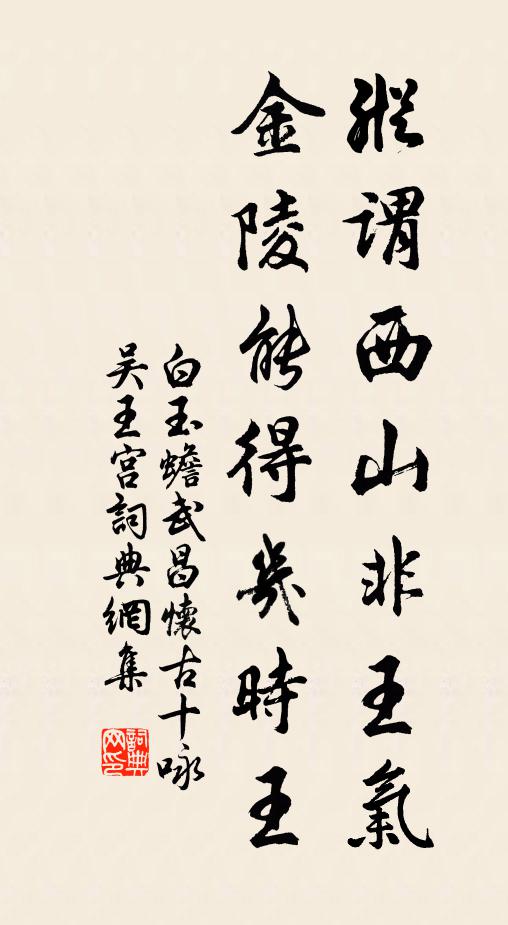 縱謂西山非王氣
金陵能得幾時王
白玉蟾武昌懷古十咏
吴王宮詞典網集
詞典网印